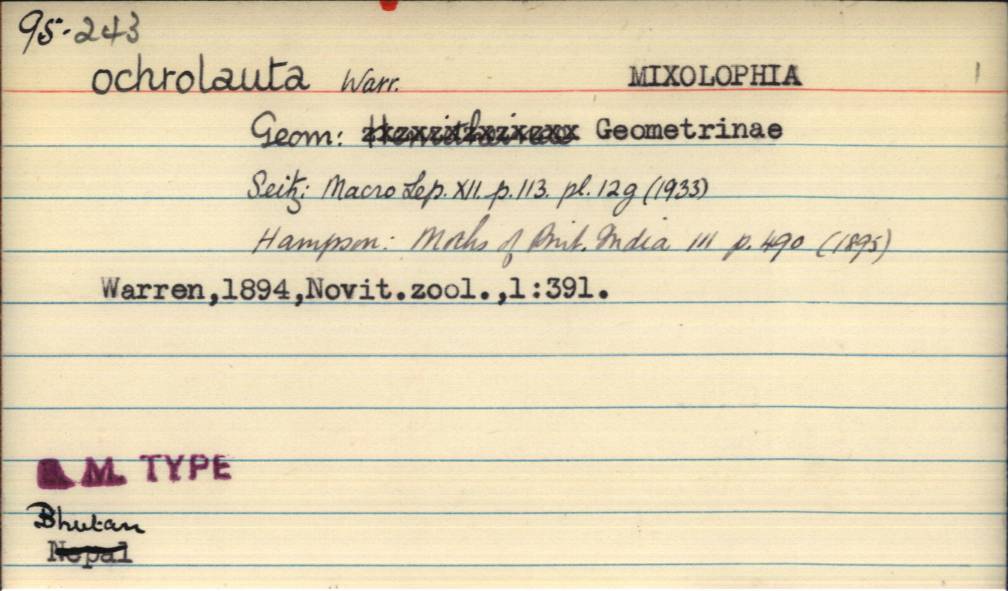 95-243
ochrolauta Warr. MIXOLOPHIA 1
Geom: Geometrinae
Seitz: Macro Lep. XII. p.113. pl. 12g (1933)
Hampson: Moths of Brit. India III p. 490 (1895)
Warren,1894,Novit.zool.,1:391.
B. M. TYPE
Bhutan
Nepal